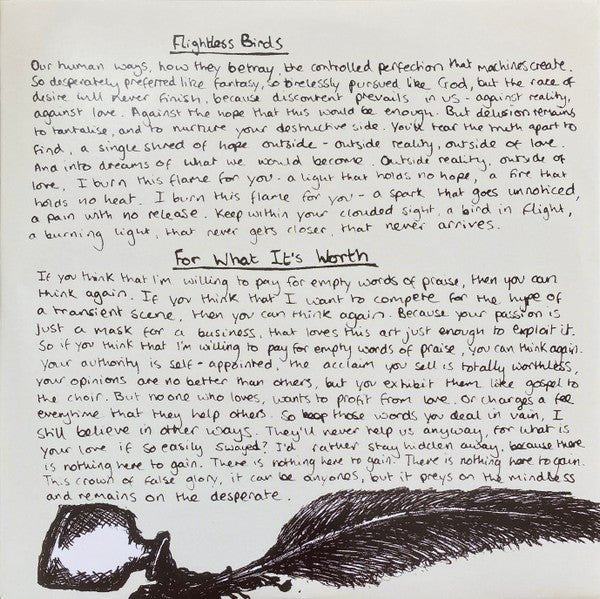 Flightless Birds
Our human ways, how they betray, the controlled perfection that machines create.
So desperately preferred like fantasy, so tirelessly pursued like God, but the race of
desire will never finish, because discontent prevails in us - against reality,
against love. Against the hope that this would be enough. But delusion remains
to tantalise, and to nurture your destructive side. You'll tear the truth apart to
find, a single shred of hope outside - outside reality, outside of love.
And into dreams of what we would become. Outside reality, outside of
love, I burn this flame for you - a light that holds no hope, a fire that
holds no heat. I burn this flame for you - a spark that goes unnoticed,
a pain with no release. Keep within your clouded sight, a bird in flight,
a burning light, that never gets closer, that never arrives.
For What It's Worth
If you think that I'm willing to pay for empty words of praise, then you can
think again. If you think that I want to compete for the hype of
a transient scene, then you can think again. Because your passion is
just a mask for a business, that loves this art just enough to exploit it.
So if you think that I'm willing to pay for empty words of praise, you can think again.
Your authority is self-appointed, the acclaim you sell is totally worthless,
your opinions are no better than others, but you exhibit them like gospel to
the choir. But no one who loves, wants to profit from love. Or charges a fee
everytime that they help others. So keep those words you deal in vain, I
still believe in other ways. They'll never help us anyway, for what is
your love if so easily swayed? I'd rather stay hidden away, because there
is nothing here to gain. There is nothing here to gain. There is nothing here to gain.
This crown of false glory, it can be anyones, but it preys on the mindless
and remains on the desperate.